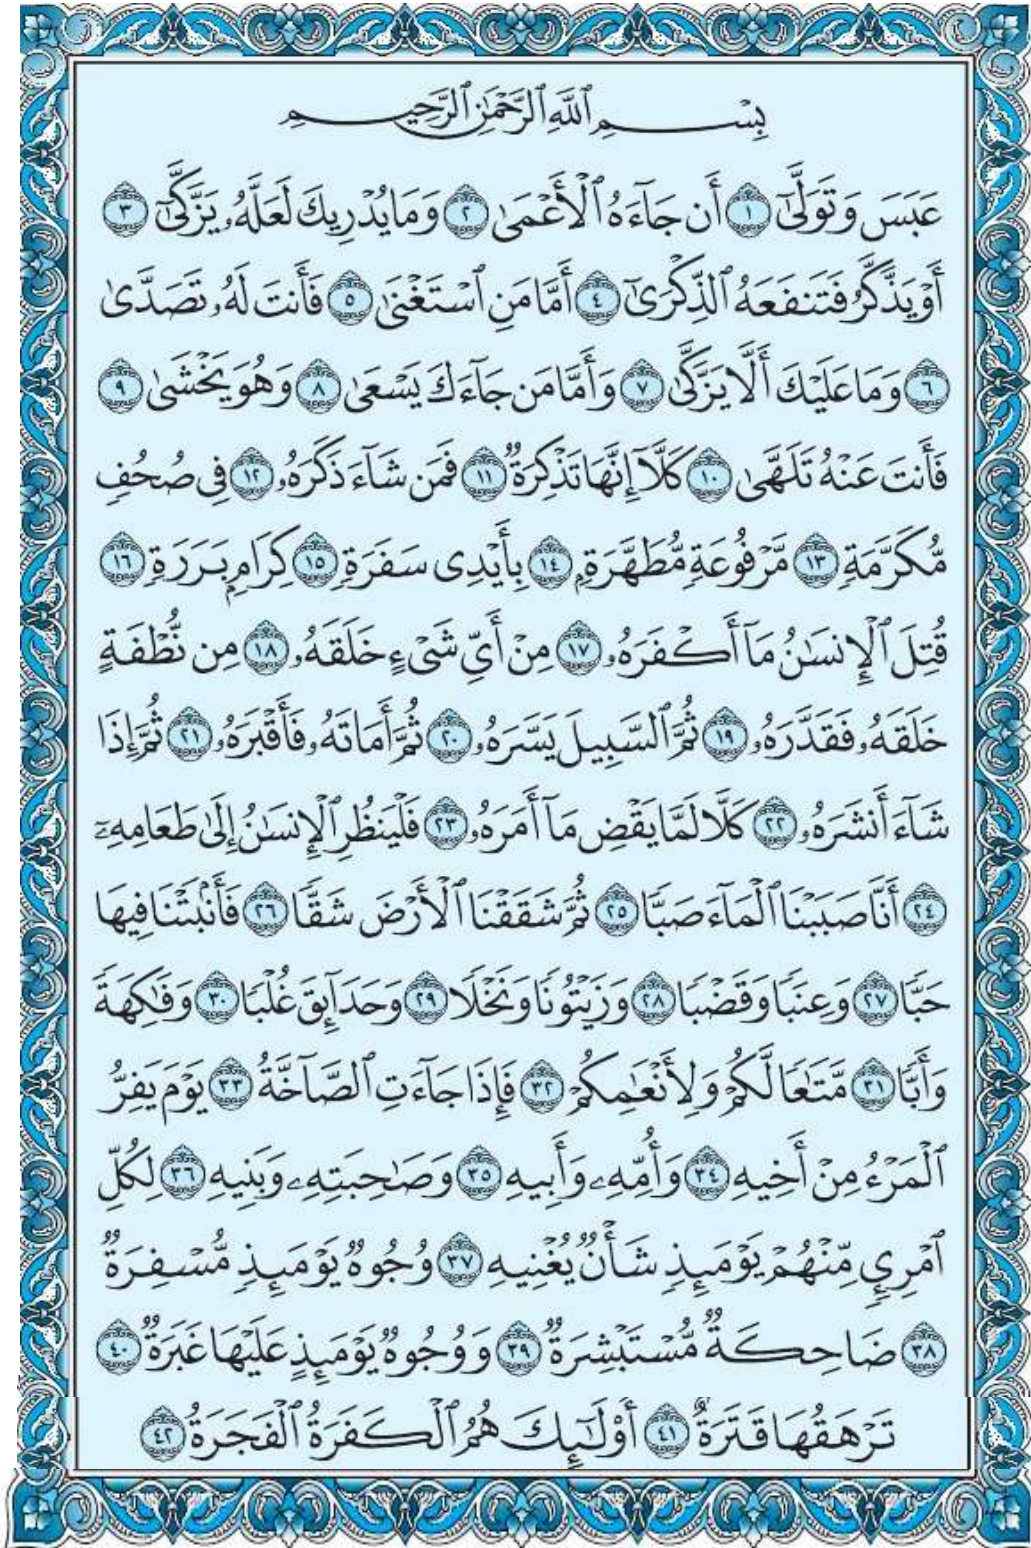 بِسْمِ ٱللَّهِ ٱلرَّحْمَٰنِ ٱلرَّحِيمِ
عَبَسَ وَتَوَلَّىٰٓ ١ أَن جَآءَهُ ٱلْأَعْمَىٰ ٢ وَمَا يُدْرِيكَ لَعَلَّهُۥ يَزَّكَّىٰٓ ٣
أَوْ يَذَّكَّرُ فَتَنفَعَهُ ٱلذِّكْرَىٰٓ ٤ أَمَّا مَنِ ٱسْتَغْنَىٰ ٥ فَأَنتَ لَهُۥ تَصَدَّىٰ
٦ وَمَا عَلَيْكَ أَلَّا يَزَّكَّىٰ ٧ وَأَمَّا مَن جَآءَكَ يَسْعَىٰ ٨ وَهُوَ يَخْشَىٰ ٩
فَأَنتَ عَنْهُ تَلَهَّىٰ ١٠ كَلَّآ إِنَّهَا تَذْكِرَةٌ ١١ فَمَن شَآءَ ذَكَرَهُۥ ١٢ فِى صُحُفٍ
مُّكَرَّمَةٍ ١٣ مَّرْفُوعَةٍ مُّطَهَّرَةٍۭ ١٤ بِأَيْدِى سَفَرَةٍ ١٥ كِرَامٍۭ بَرَرَةٍ ١٦
قُتِلَ ٱلْإِنسَٰنُ مَآ أَكْفَرَهُۥ ١٧ مِنْ أَىِّ شَىْءٍ خَلَقَهُۥ ١٨ مِن نُّطْفَةٍ
خَلَقَهُۥ فَقَدَّرَهُۥ ١٩ ثُمَّ ٱلسَّبِيلَ يَسَّرَهُۥ ٢٠ ثُمَّ أَمَاتَهُۥ فَأَقْبَرَهُۥ ٢١ ثُمَّ إِذَا
شَآءَ أَنشَرَهُۥ ٢٢ كَلَّا لَمَّا يَقْضِ مَآ أَمَرَهُۥ ٢٣ فَلْيَنظُرِ ٱلْإِنسَٰنُ إِلَىٰ طَعَامِهِۦٓ
٢٤ أَنَّا صَبَبْنَا ٱلْمَآءَ صَبًّا ٢٥ ثُمَّ شَقَقْنَا ٱلْأَرْضَ شَقًّا ٢٦ فَأَنۢبَتْنَا فِيهَا
حَبًّا ٢٧ وَعِنَبًا وَقَضْبًا ٢٨ وَزَيْتُونًا وَنَخْلًا ٢٩ وَحَدَآئِقَ غُلْبًا ٣٠ وَفَٰكِهَةً
وَأَبًّا ٣١ مَّتَٰعًا لَّكُمْ وَلِأَنْعَٰمِكُمْ ٣٢ فَإِذَا جَآءَتِ ٱلصَّآخَّةُ ٣٣ يَوْمَ يَفِرُّ
ٱلْمَرْءُ مِنْ أَخِيهِ ٣٤ وَأُمِّهِۦ وَأَبِيهِ ٣٥ وَصَٰحِبَتِهِۦ وَبَنِيهِ ٣٦ لِكُلِّ
ٱمْرِئٍ مِّنْهُمْ يَوْمَئِذٍ شَأْنٌ يُغْنِيهِ ٣٧ وُجُوهٌ يَوْمَئِذٍ مُّسْفِرَةٌ
٣٨ ضَاحِكَةٌ مُّسْتَبْشِرَةٌ ٣٩ وَوُجُوهٌ يَوْمَئِذٍ عَلَيْهَا غَبَرَةٌ ٤٠
تَرْهَقُهَا قَتَرَةٌ ٤١ أُو۟لَٰٓئِكَ هُمُ ٱلْكَفَرَةُ ٱلْفَجَرَةُ ٤٢